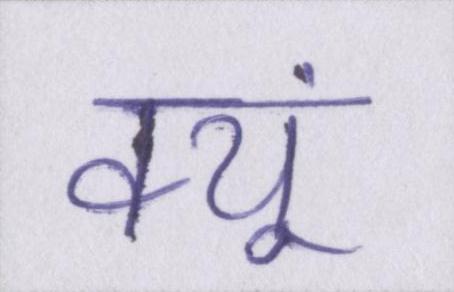 क्यूं